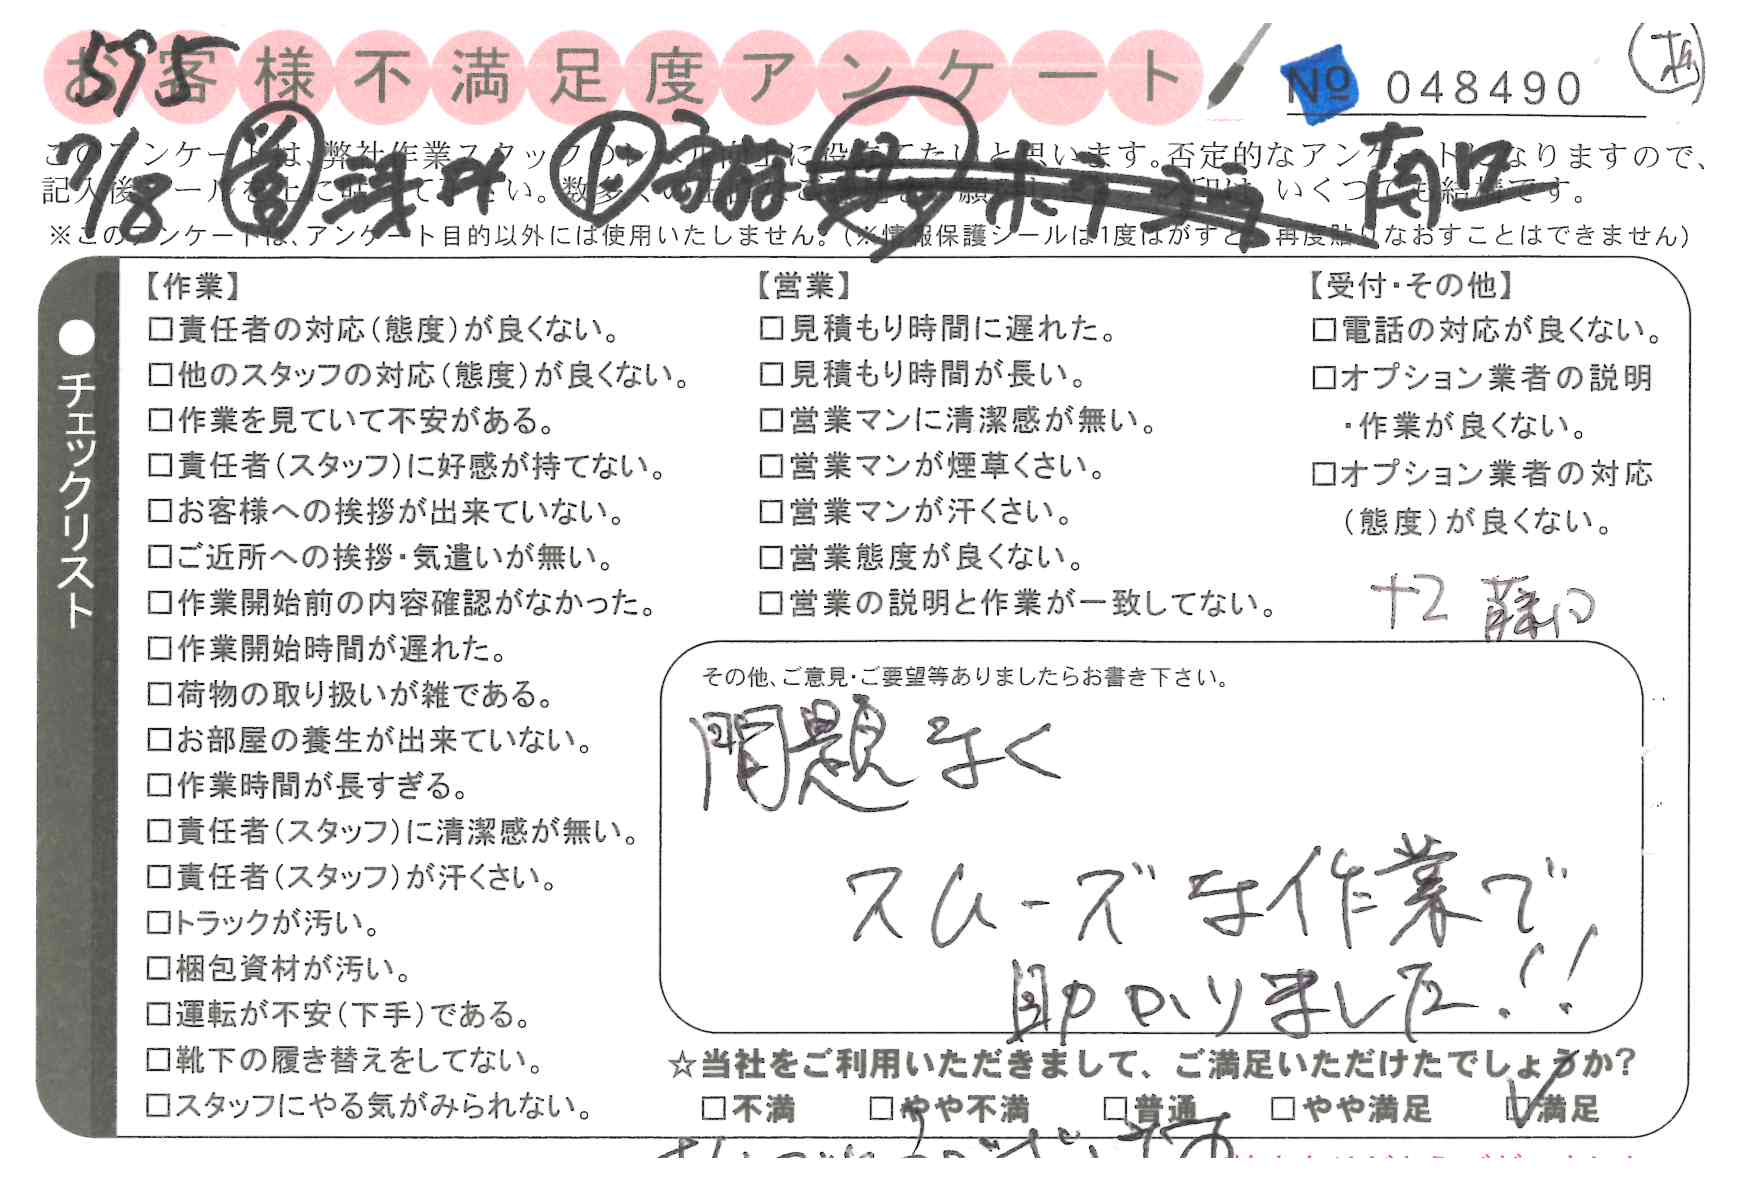 お客様不満足度アンケート
595
№ 048490
7/8
南口
このアンケートは、弊社作業スタッフの
に役立てたいと思います。否定的なアンケートになりますので、
記入後シールを上に
下さい。数多く
いくつでも結構です。
※このアンケートは、アンケート目的以外には使用いたしません。（※情報保護シールは1度はがすと、再度貼りなおすことはできません）
●チェックリスト
【作業】
□責任者の対応（態度）が良くない。
□他のスタッフの対応（態度）が良くない。
□作業を見ていて不安がある。
□責任者（スタッフ）に好感が持てない。
□お客様への挨拶が出来ていない。
□ご近所への挨拶・気遣いが無い。
□作業開始前の内容確認がなかった。
□作業開始時間が遅れた。
□荷物の取り扱いが雑である。
□お部屋の養生が出来ていない。
□作業時間が長すぎる。
□責任者（スタッフ）に清潔感が無い。
□責任者（スタッフ）が汗くさい。
□トラックが汚い。
□梱包資材が汚い。
□運転が不安（下手）である。
□靴下の履き替えをしてない。
□スタッフにやる気がみられない。
【営業】
□見積もり時間に遅れた。
□見積もり時間が長い。
□営業マンに清潔感が無い。
□営業マンが煙草くさい。
□営業マンが汗くさい。
□営業態度が良くない。
□営業の説明と作業が一致してない。
【受付・その他】
□電話の対応が良くない。
□オプション業者の説明
・作業が良くない。
□オプション業者の対応
（態度）が良くない。
+2
その他、ご意見・ご要望等ありましたらお書き下さい。
問題なく
スムーズな作業で
助かりました!!
☆当社をご利用いただきまして、ご満足いただけたでしょうか?
□不満 □やや不満 □普通 □やや満足 □満足